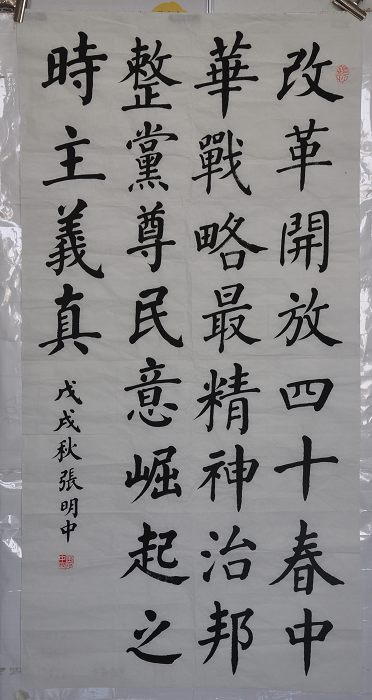 改革開放四十春中
華戰略最精神治邦
整黨尊民意崛起之
時主義真
戊戌秋張明中